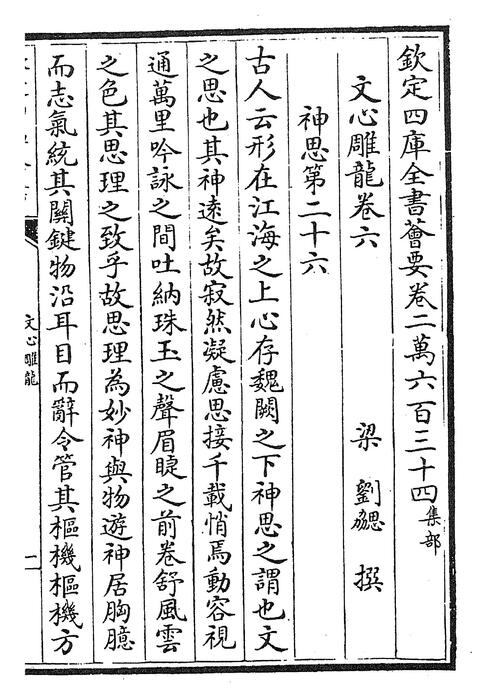 欽定四庫全書薈要卷二萬六百三十四集部
文心雕龍卷六 梁 劉勰 撰
神思第二十六
古人云形在江海之上心存魏闕之下神思之謂也文
之思也其神遠矣故寂然凝慮思接千載悄焉動容視
通萬里吟詠之間吐納珠玉之聲眉睫之前卷舒風雲
之色其思理之致乎故思理為妙神與物遊神居胸臆
而志氣統其關鍵物沿耳目而辭令管其樞機樞機方
文心雕龍
一